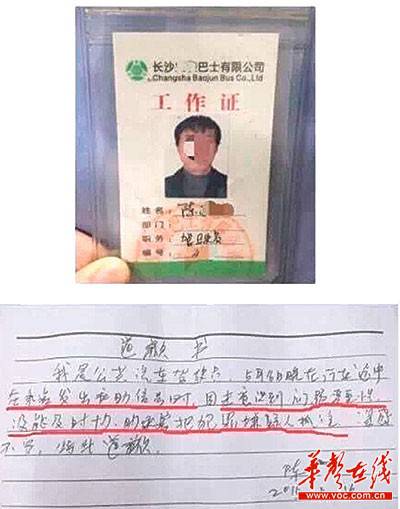 长沙 巴士有限公司
Changsha Baojun Bus Co.,Ltd
工作证
姓名: 陈
部门:
职务: 驾驶员
编号:
道歉书
我是公共汽车驾驶员 5月6日晚在行车途中
在乘客发出求助信号时,因未意识到问题严重性
没能及时 协助乘客把犯罪嫌疑人抓住 道歉
不 , 特此道歉
陈
201
华声在线
www.voc.com.cn